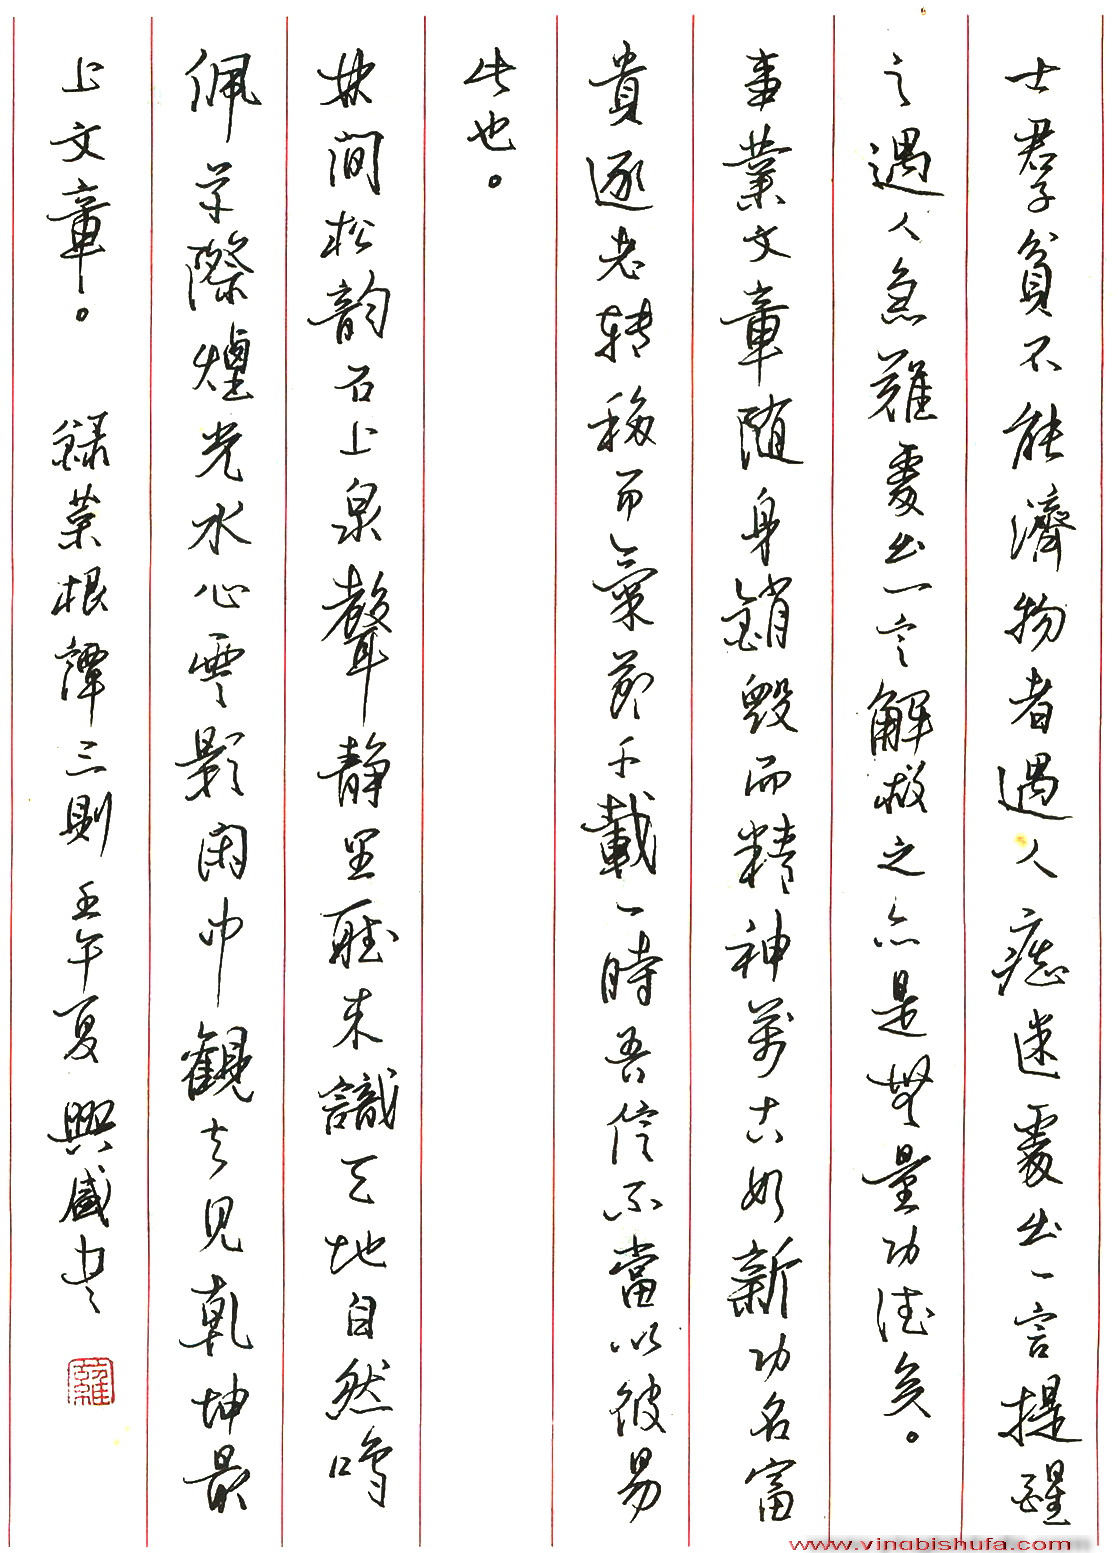 士君子貧不能濟物者遇人痴迷處出一言提醒
之遇人急難處出一言解救之亦是無量功德矣。
事業文章随身銷毀而精神萬古如新功名富
貴逐世转移而氣節千載一時吾信不當以彼易
此也。
林间松韵石上泉聲静里聽来識天地自然鳴
佩草際煙光水心雲影闲中觀去見乾坤最
上文章。 録菜根譚三則 壬午夏 興盛书
羅
www.yingbishufa.com